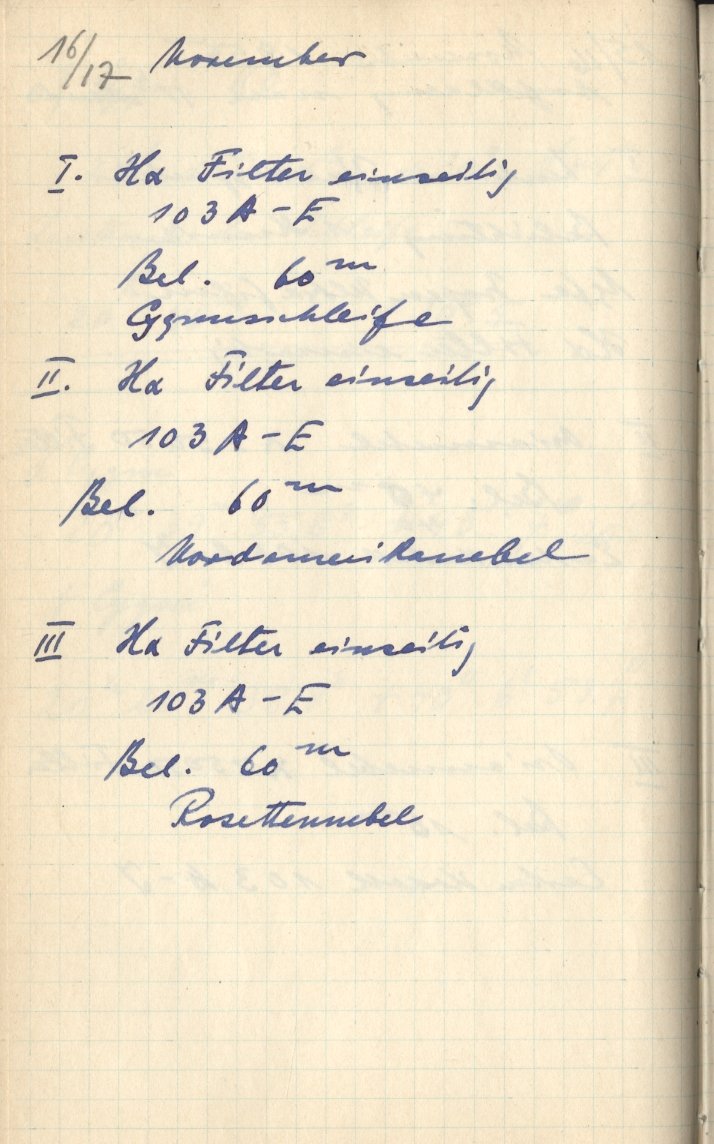 16/17 November
I. Hα Filter einseitig
103 A-E
Bel. 60ᵐ
Cygnusschleife
II. Hα Filter einseitig
103 A-E
Bel. 60ᵐ
Nordamerikanebel
III Hα Filter einseitig
103 A-E
Bel. 60ᵐ
Rosettennebel